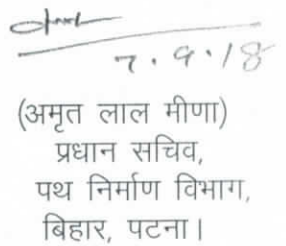 7.9.18
(अमृत लाल मीणा)
प्रधान सचिव,
पथ निर्माण विभाग,
बिहार, पटना।